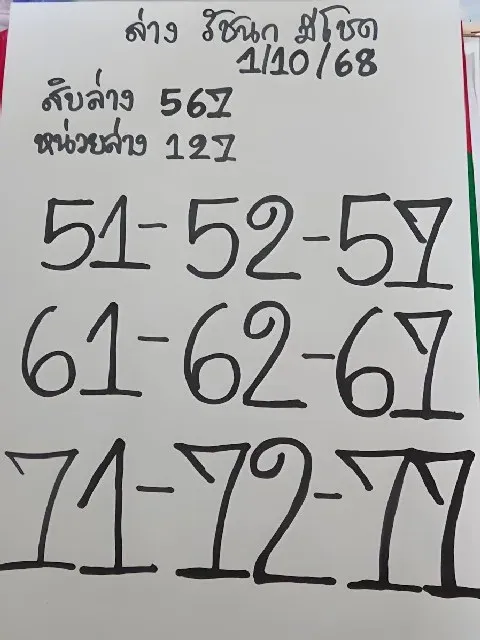 ล่าง รัชนก มีโชค
1/10/68
สิบล่าง 567
หน่วยล่าง 127
51-52-57
61-62-67
71-72-77